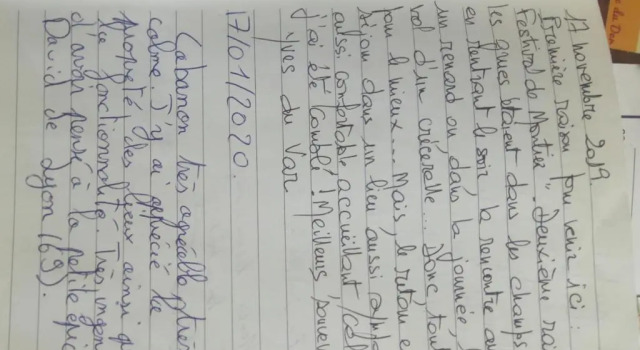 17 novembre 2019
Première raison pour venir ici :
Festival de Montier". Deuxième rai
les grues étaient dans les champs
en rentrant le soir la rencontre av
un renard ou dans la journée,
vol d'un crécerelle... Donc, tout
pour le mieux... Mais, le retour
bijou dans un lieu aussi
aussi confortable, accueillant,
j'ai été comblé ! Meilleurs souve
Yves du Var
17/01/2020.
Cabanon très agréable,
calme. J'y ai apprécié la
propreté des lieux ainsi
la fonctionnalité. Très
d'avoir pensé à la petite
David de Lyon (69).